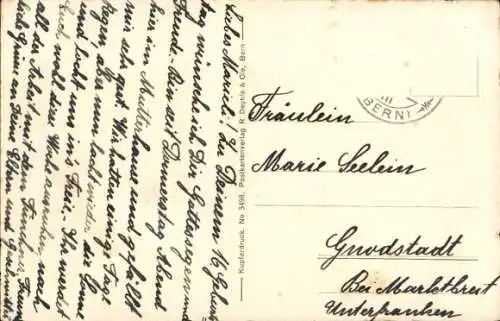 Liebes Mariele! Zu Deinem 16. Geburts-
tag wünsche ich Dir Gottessegen und
Freude. Bin seit Donnerstag Abend
hier im Mutterhause und gefällt
mir sehr gut. Wir hatten einige Tage
Regen, aber nun lacht wieder die Sonne
und lockt uns ins Freie. Ihr werdet
Euch wohl diese Woche ausruhen nach
all der Arbeit mit dem
liebe Grüsse an Deine Eltern und Geschwister
Kupferdruck. No 3498, Postkartenverlag R. Deyhle & Cie, Bern
BERN
Fräulein
Marie Seelein
Gnodstadt
Bei Marktbreit
Unterfranken